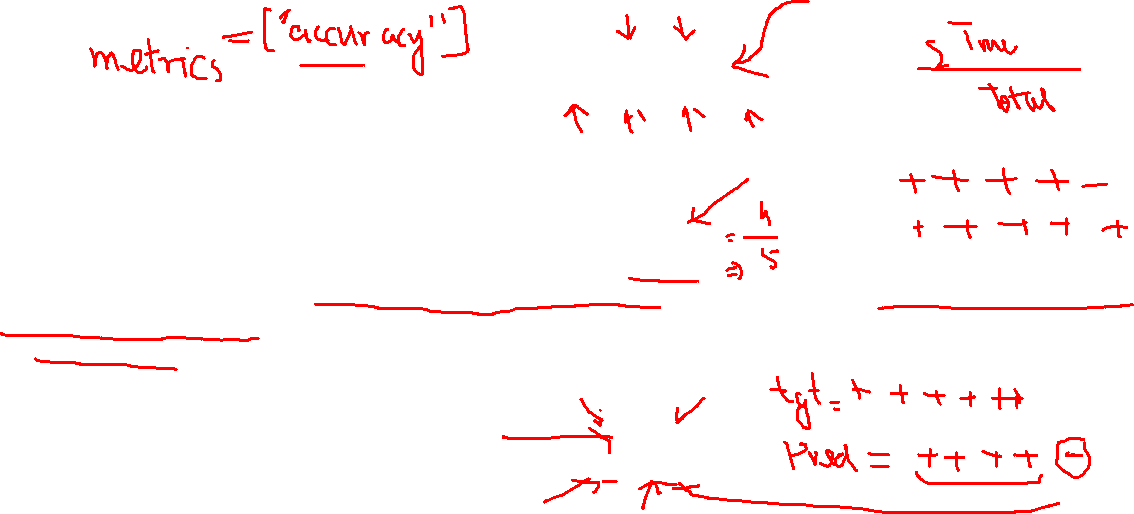 metrics = ["accuracy"]
Σ True
Total
+ + + + -
+ + + + +
= 4
⇒ 5
tgt = + + + + +
Pred = + + + + -